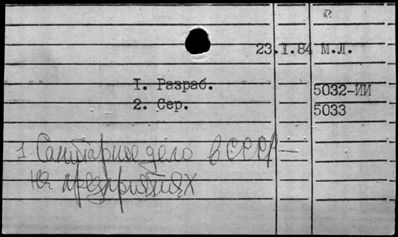 23.I.84 М.Л.
I. Разраб.
5032-ИИ
2. Сер.
5033
1 Санитарное дело в СССР —
на предприятиях